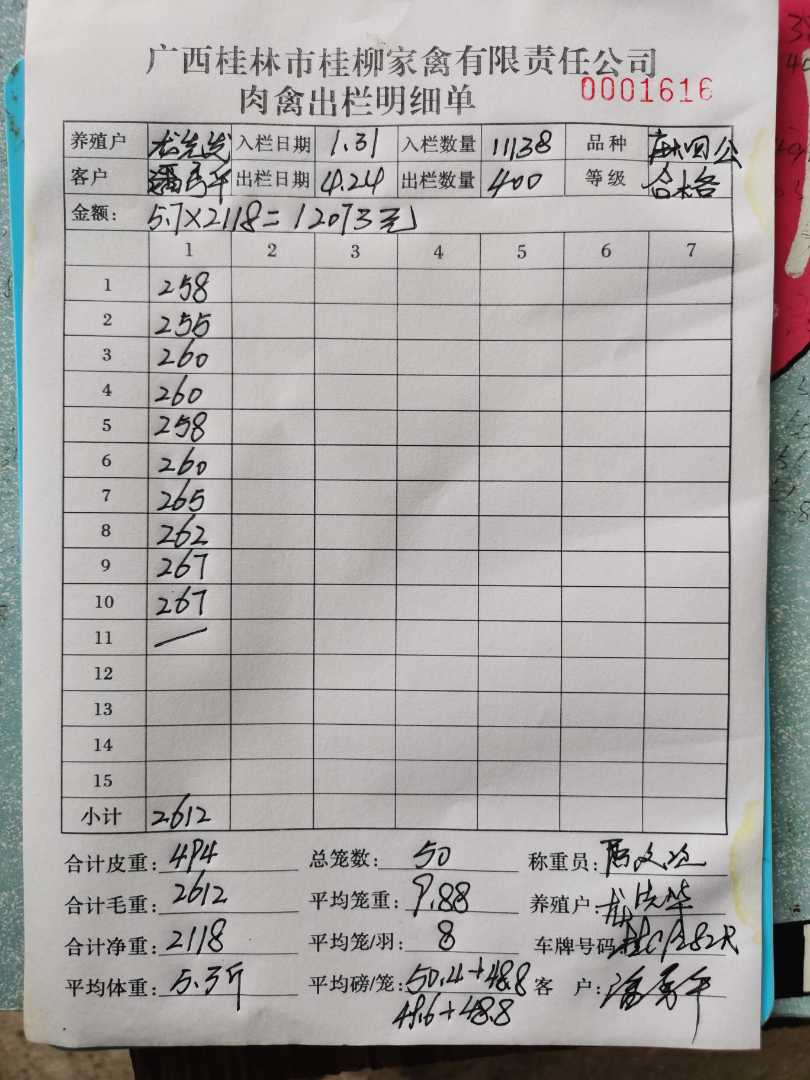 广西桂林市桂柳家禽有限责任公司
肉禽出栏明细单 0001616
养殖户 入栏日期 1.31 入栏数量 11138 品种
客户 出栏日期 4.24 出栏数量 400 等级 合格
金额: 5.7×2118=12073元
1 2 3 4 5 6 7
1 258
2 255
3 260
4 260
5 258
6 260
7 265
8 262
9 267
10 267
11 —
12
13
14
15
小计 2612
合计皮重: 494 总笼数: 50 称重员:
合计毛重: 2612 平均笼重: 9.88 养殖户:
合计净重: 2118 平均笼/羽: 8 车牌号码:
平均体重: 5.3斤 平均磅/笼: 50.4+48.8 客 户:
49.6+48.8